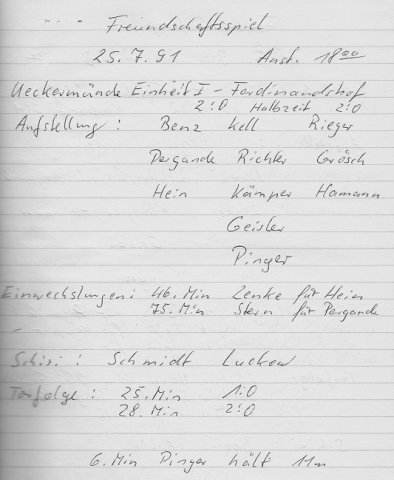 Freundschaftsspiel
25.7.91 Anst. 18⁰⁰
Ueckermünde Einheit I - Ferdinandshof
2:0 Halbzeit 2:0
Aufstellung: Benz Kell Rieger
Pergande Richter Grösch
Hein Kämper Hamann
Geisler
Pinger
Einwechslungen: 46. Min Zenke für Hein
75. Min Stern für Pergande
Schiri: Schmidt Luckow
Torfolge: 25. Min 1:0
28. Min 2:0
6. Min Pinger hält 11m